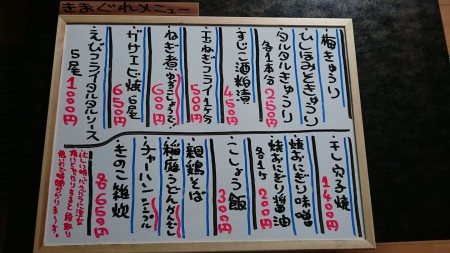 きまぐれメニュー
・梅きゅうり
・ひしほみそきゅうり
・タルタルきゅうり
各1本分 250円
・すじこ酒粕漬
450円
・玉ねぎフライ1ケ分
500円
・ねぎ煮
600円
・ガサエビ焼6尾
650円
・えびフライタルタルソース
5尾 1000円
・干し穴子焼
1400円
・焼おにぎり味噌
・焼おにぎり醤油
各1ケ 200円
・こしょう飯
300円
・親鶏そば
・稲庭うどん
・チャーハン
・きのこ雑炊
各650円